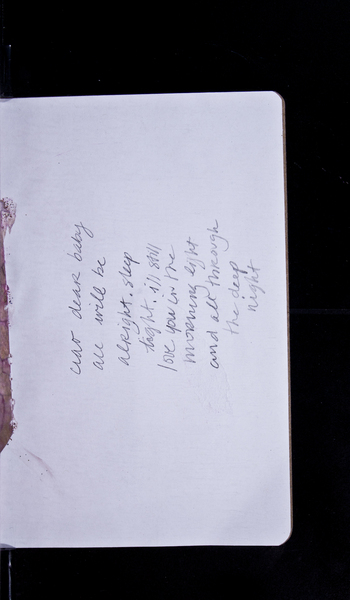 ciao dear baby
all will be
alright. sleep
tight. i'll still
love you in the
morning light
and all through
the deep
night